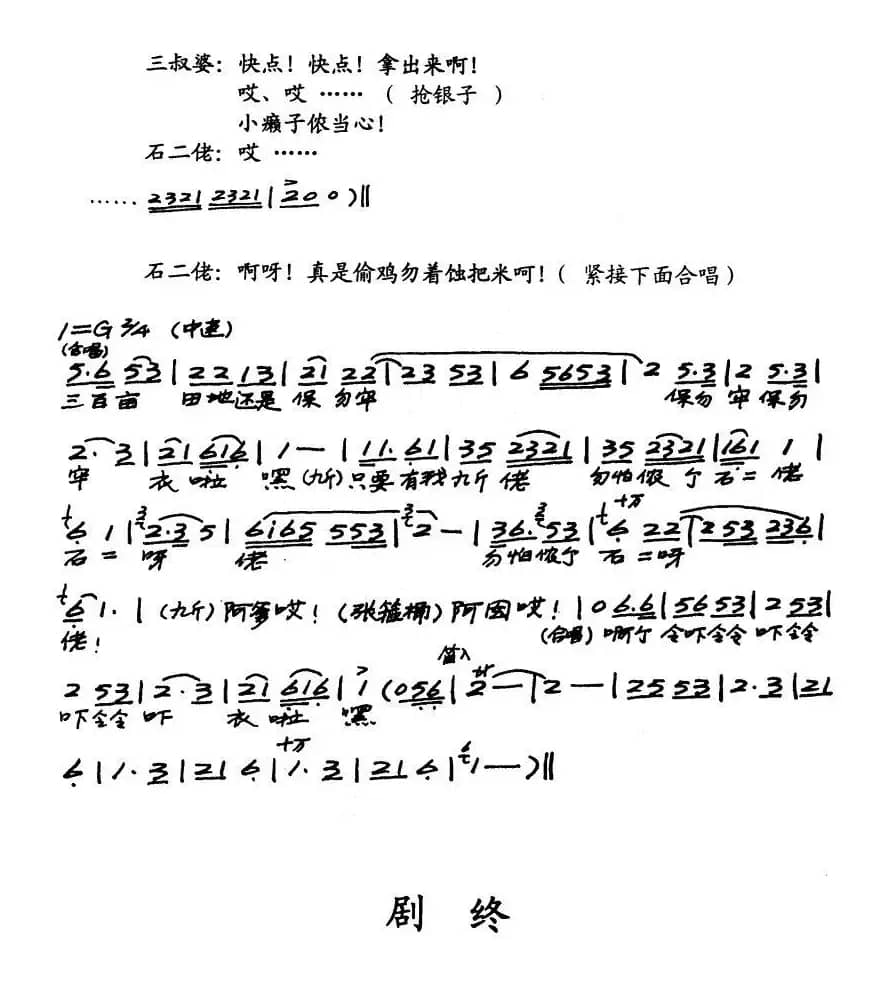 三叔婆：快点！快点！拿出来啊！
哎、哎 …… （ 抢银子 ）
小癞子侬当心！
石二佬：哎 ……
…… 2321 2321 | 2 0 0 )‖
石二佬：啊呀！真是偷鸡勿着蚀把米呵！（ 紧接下面合唱）
1=G 3/4 （中速）
（合唱）
5·6 53 | 22 13 | 21 22 | 23 53 | 6 5653 | 2 5·3 | 2 5·3 |
三百亩 田地还是 保 勿牢 保勿 牢 保勿
2· 3 | 21 616 | 1 — | 11· 61 | 35 2321 | 35 2321 | 161 1 |
牢 衣 啦 嘿 （九斤）只要 有我 九斤 佬 勿怕侬 个 石二 佬
+万
6 1 | 2·3 5 | 6165 553 | 2 — | 36· 53 | 6 22 | 253 236 |
石 二 呀 佬 勿怕侬个 石 二呀
6 1· | （九斤）阿爹哎！（张箍桶）阿囡哎！ | 0 6·6 | 56 53 | 2 53 |
佬！ （合唱） 啊个 令吓令令 吓令
笛入
2 53 | 2· 3 | 21 616 | 1 (056 | 2 — | 2 — | 25 53 | 2· 3 | 21
吓令令 吓 衣 啦 嘿
+万
6 | 1· 3 | 21 6 | 1· 3 | 21 6 | 1 — )‖
剧 终